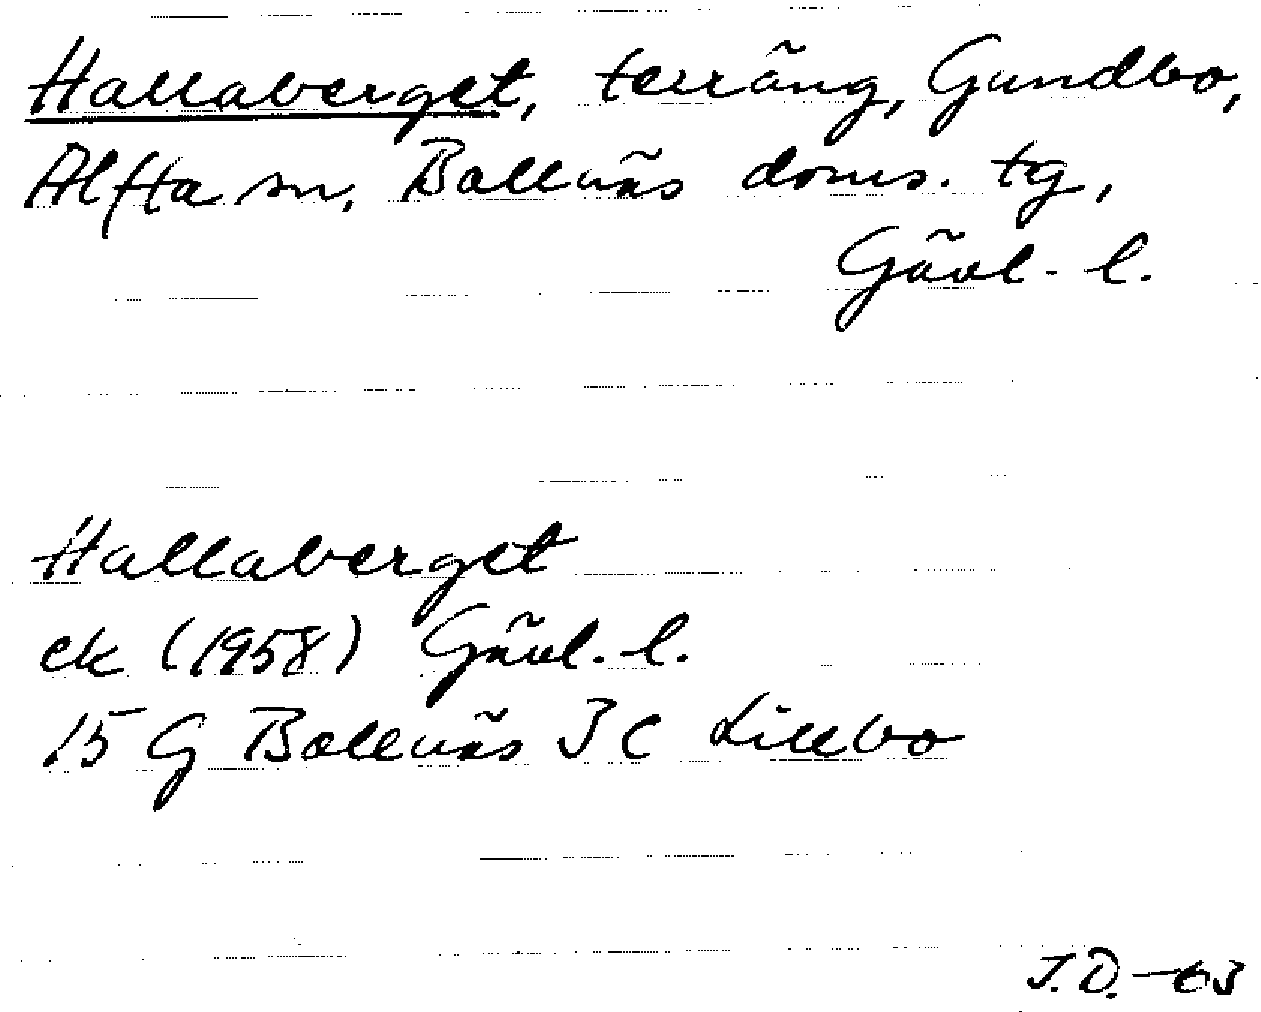 Hallaberget, terräng, Gundbo,
Alfta sn, Bollnäs doms. tg,
Gävl. l.
Hallaberget
ek (1958) Gävl. l.
15 G Bollnäs 3 c Lillbo
J.D. -63